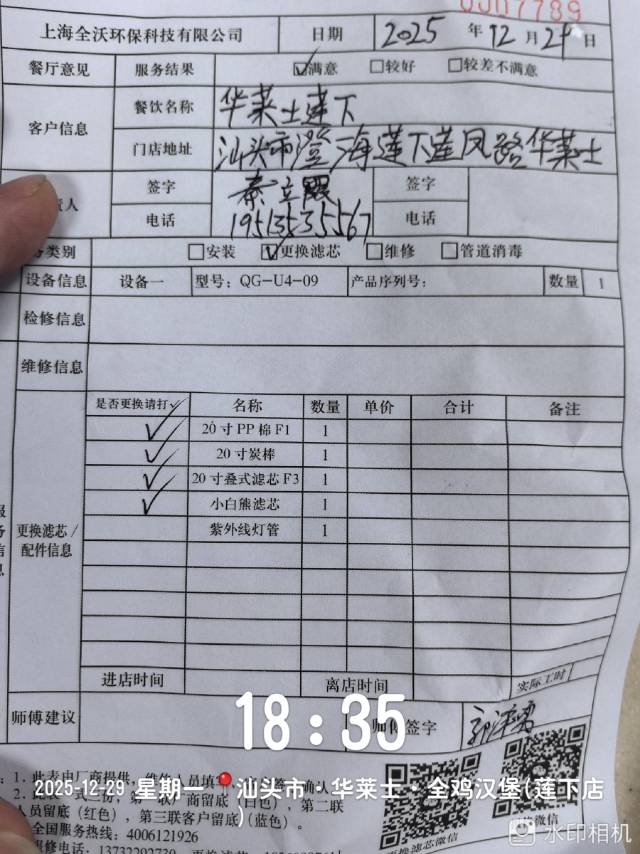 0307789
上海全沃环保科技有限公司 日期 2025 年 12 月 29 日
餐厅意见 服务结果 ☑满意 □较好 □较差不满意
客户信息 餐饮名称 华莱士莲下
门店地址 汕头市澄海莲下莲凤路华莱士
责人 签字 秦立霞 签字
电话 19513535567 电话
务类别 □安装 ☑更换滤芯 □维修 □管道消毒
设备信息 设备一 型号：QG-U4-09 产品序列号： 数量 1
检修信息
维修信息
更换滤芯/配件信息
是否更换请打✓ 名称 数量 单价 合计 备注
✓ 20寸PP棉F1 1
✓ 20寸炭棒 1
✓ 20寸叠式滤芯F3 1
✓ 小白熊滤芯 1
紫外线灯管 1
进店时间 离店时间 实际工时
师傅建议 师傅签字
18:35
2025-12-29 星期一 汕头市·华莱士·全鸡汉堡(莲下店)
：1. 此表由厂商提供，维修人员填
人员留底（红色），第三联客户留底（蓝色）。
全国服务热线：4006121926
维修电话：13732292730
更换滤芯微信
水印相机